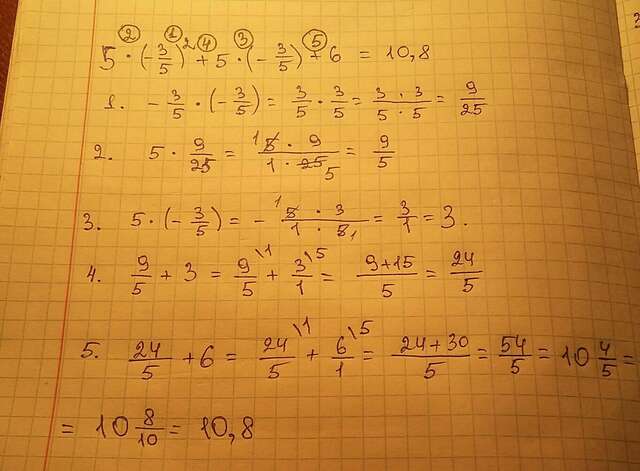 ② ① ④ ③ ⑤
5 · (-3/5)² + 5 · (-3/5) + 6 = 10,8
1. -3/5 · (-3/5) = 3/5 · 3/5 = 3 · 3/5 · 5 = 9/25
2. 5 · 9/25 = 1 5 · 9/1 · 25 5 = 9/5
3. 5 · (-3/5) = - 1 5 · 3/1 · 5 1 = 3/1 = 3.
4. 9/5 + 3 = 9/5 \1 + 3/1 \5 = 9+15/5 = 24/5
5. 24/5 + 6 = 24/5 \1 + 6/1 \5 = 24+30/5 = 54/5 = 10 4/5 =
= 10 8/10 = 10,8